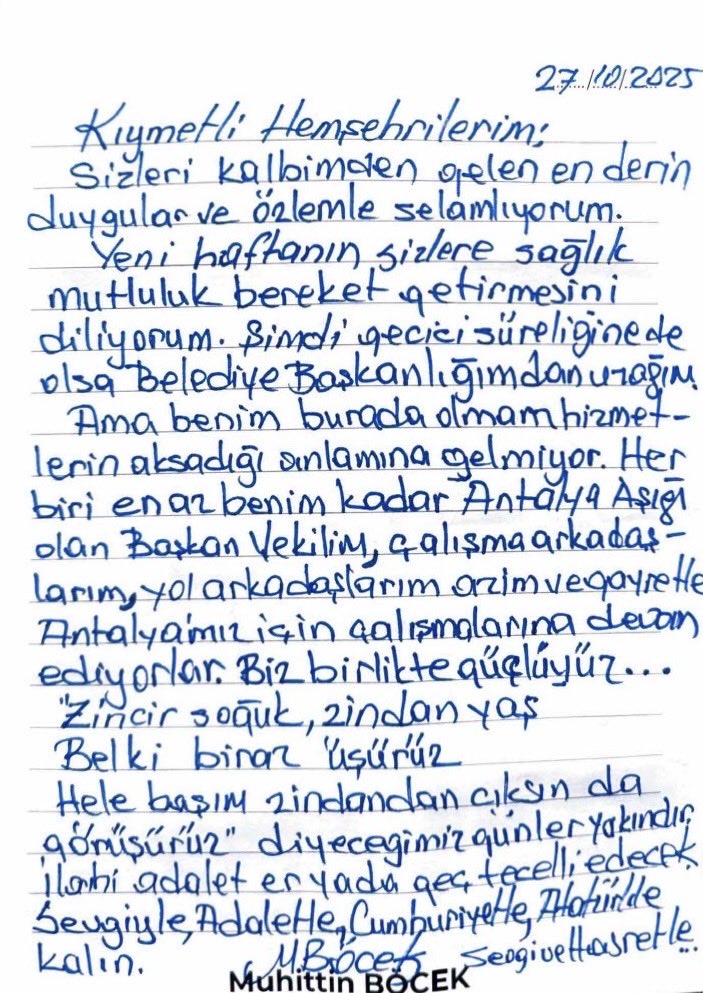 27/10/2025
Kıymetli Hemşehrilerim;
Sizleri kalbimden gelen en derin
duygular ve özlemle selamlıyorum.
Yeni haftanın sizlere sağlık
mutluluk bereket getirmesini
diliyorum. Şimdi geçici süreliğine de
olsa Belediye Başkanlığımdan uzağım.
Ama benim burada olmam hizmet-
lerin aksadığı anlamına gelmiyor. Her
biri en az benim kadar Antalya Aşığı
olan Başkan Vekilim, çalışma arkadaş-
larım, yol arkadaşlarım azim ve gayretle
Antalyamız için çalışmalarına devam
ediyorlar. Biz birlikte güçlüyüz...
"Zincir soğuk, zindan yaş
Belki biraz üşürüz
Hele başım zindandan çıksın da
görüşürüz" diyeceğimiz günler yakındır,
ilahi adalet er yada geç tecelli edecek
Sevgiyle, Adaletle, Cumhuriyetle, Atatürk'le
kalın. M.Böcek Sevgi ve Hasretle...
Muhittin BÖCEK